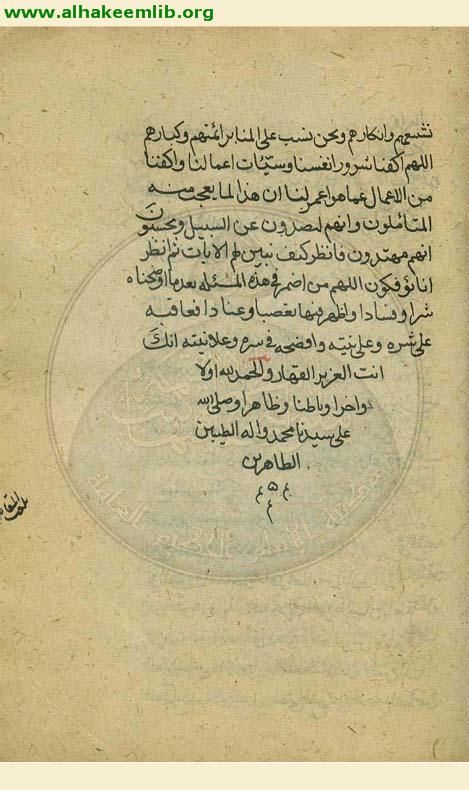 www.alhakeemlib.org
تشيعهم وانكارهم ونحن نسب على المنابر ائمتهم وكبارهم
اللهم اكفنا شرور انفسنا وسيّئات اعمالنا واكفنا
من الاعمال عما هو اعمر لنا ان هذا لما يعجب منه
المتأملون وانهم ليصدون عن السبيل ويحسبون
انهم مهتدون فانظر كيف نبين لهم الايات ثم انظر
انا يؤفكون اللهم من اضمر في هذه المسئله بعد ما اوضحناه
شرا وفسادا واظهر فيها تعصبا وعنادا فعاقبه
على شره وعلى نيته وافضحه في سره وعلانيته انك
انت العزيز القهار والحمد لله اولا
واخرا وباطنا وظاهرا وصلى الله
على سيدنا محمد واله الطيبين
الطاهرين